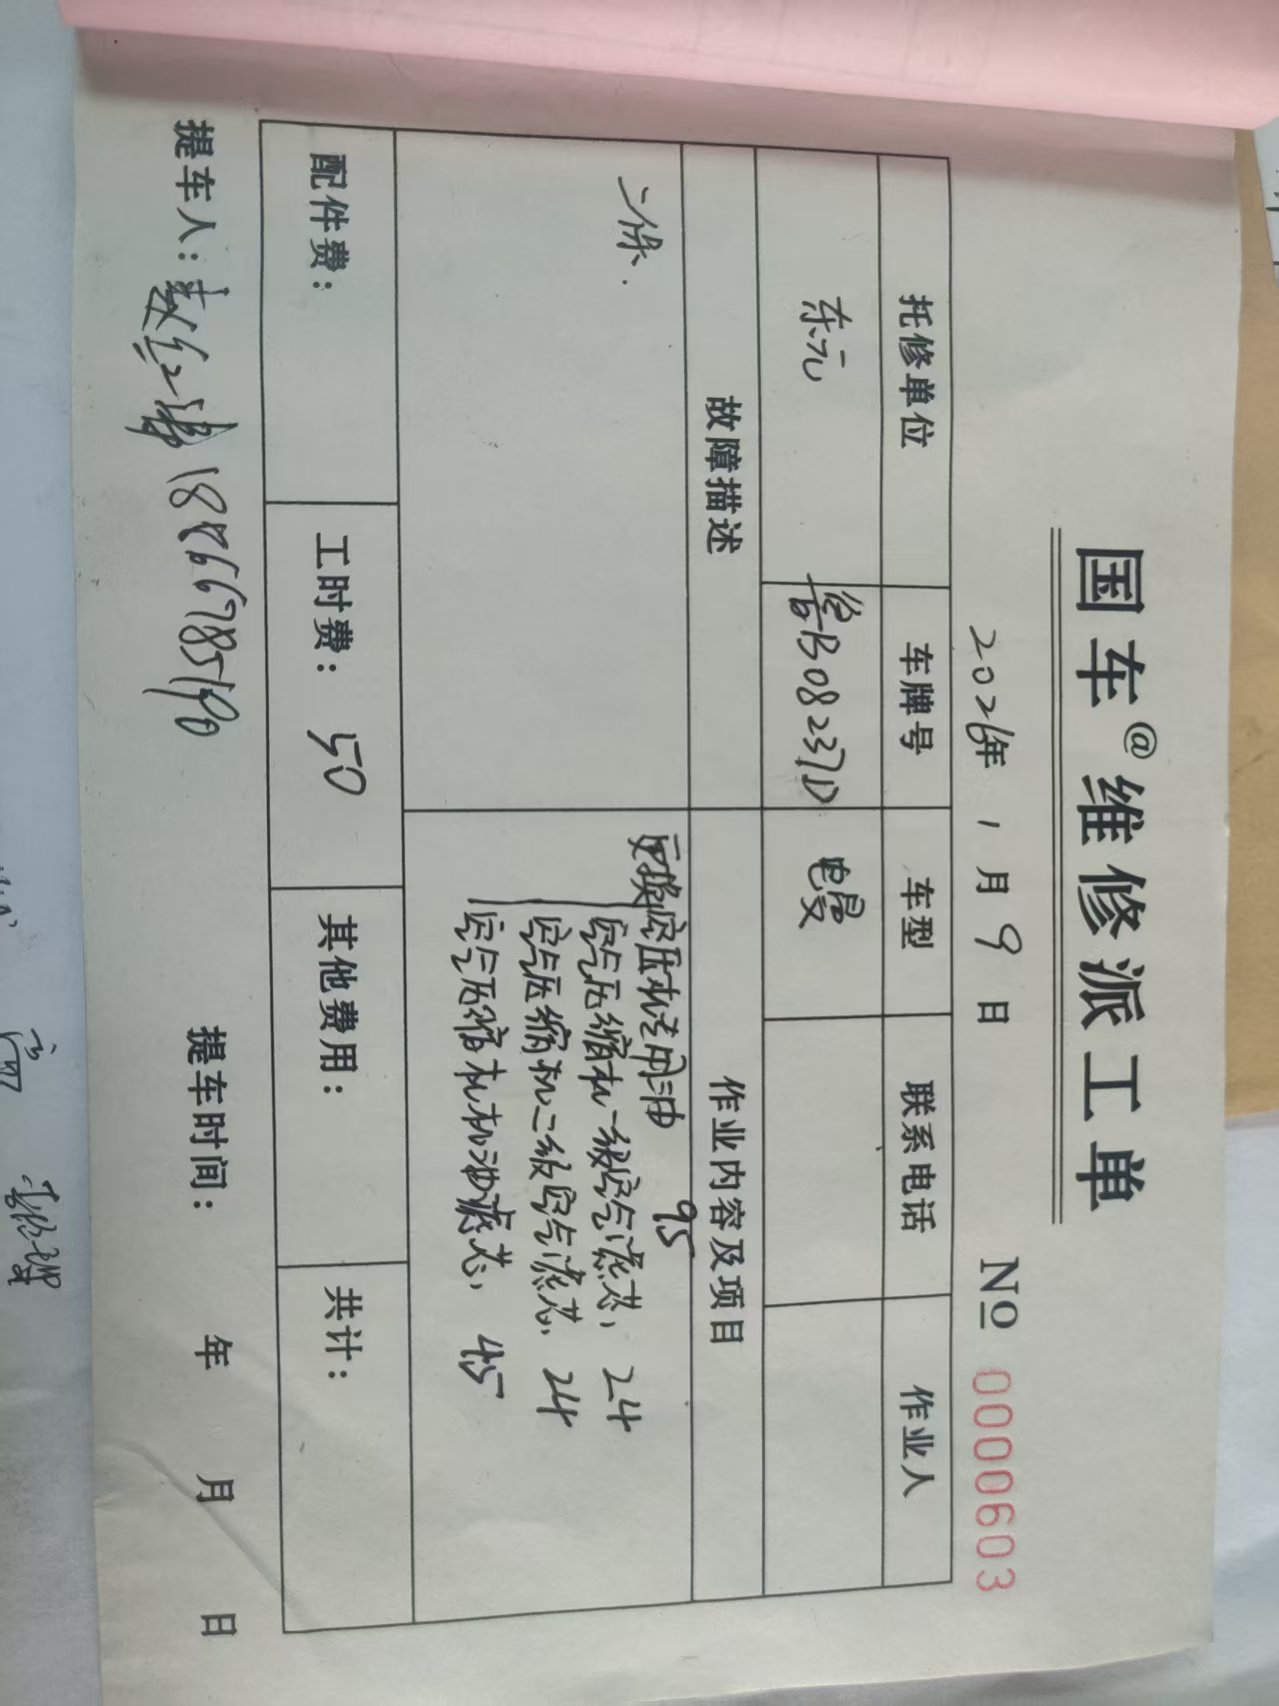 国车@维修派工单
2026年 1月 9日 No 0000603
托修单位 车牌号 车型 联系电话 作业人
东元 鲁B08237D 电曼
故障描述 作业内容及项目
二保. 更换空压机专用油 95
空气压缩机一级空气滤芯, 24
空气压缩机二级空气滤芯, 24
空气压缩机机油滤芯, 45
配件费： 工时费： 50 其他费用： 共计：
提车人： 18866785190 提车时间： 年 月 日